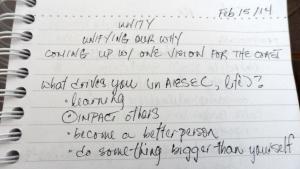 Feb 15/14
UNITY
UNIFYING OUR WHY
COMING UP W/ ONE VISION FOR THE COAST
what drives you (in AIESEC, life)?
• learning
• IMPACT others
• become a better person
• do something bigger than yourself